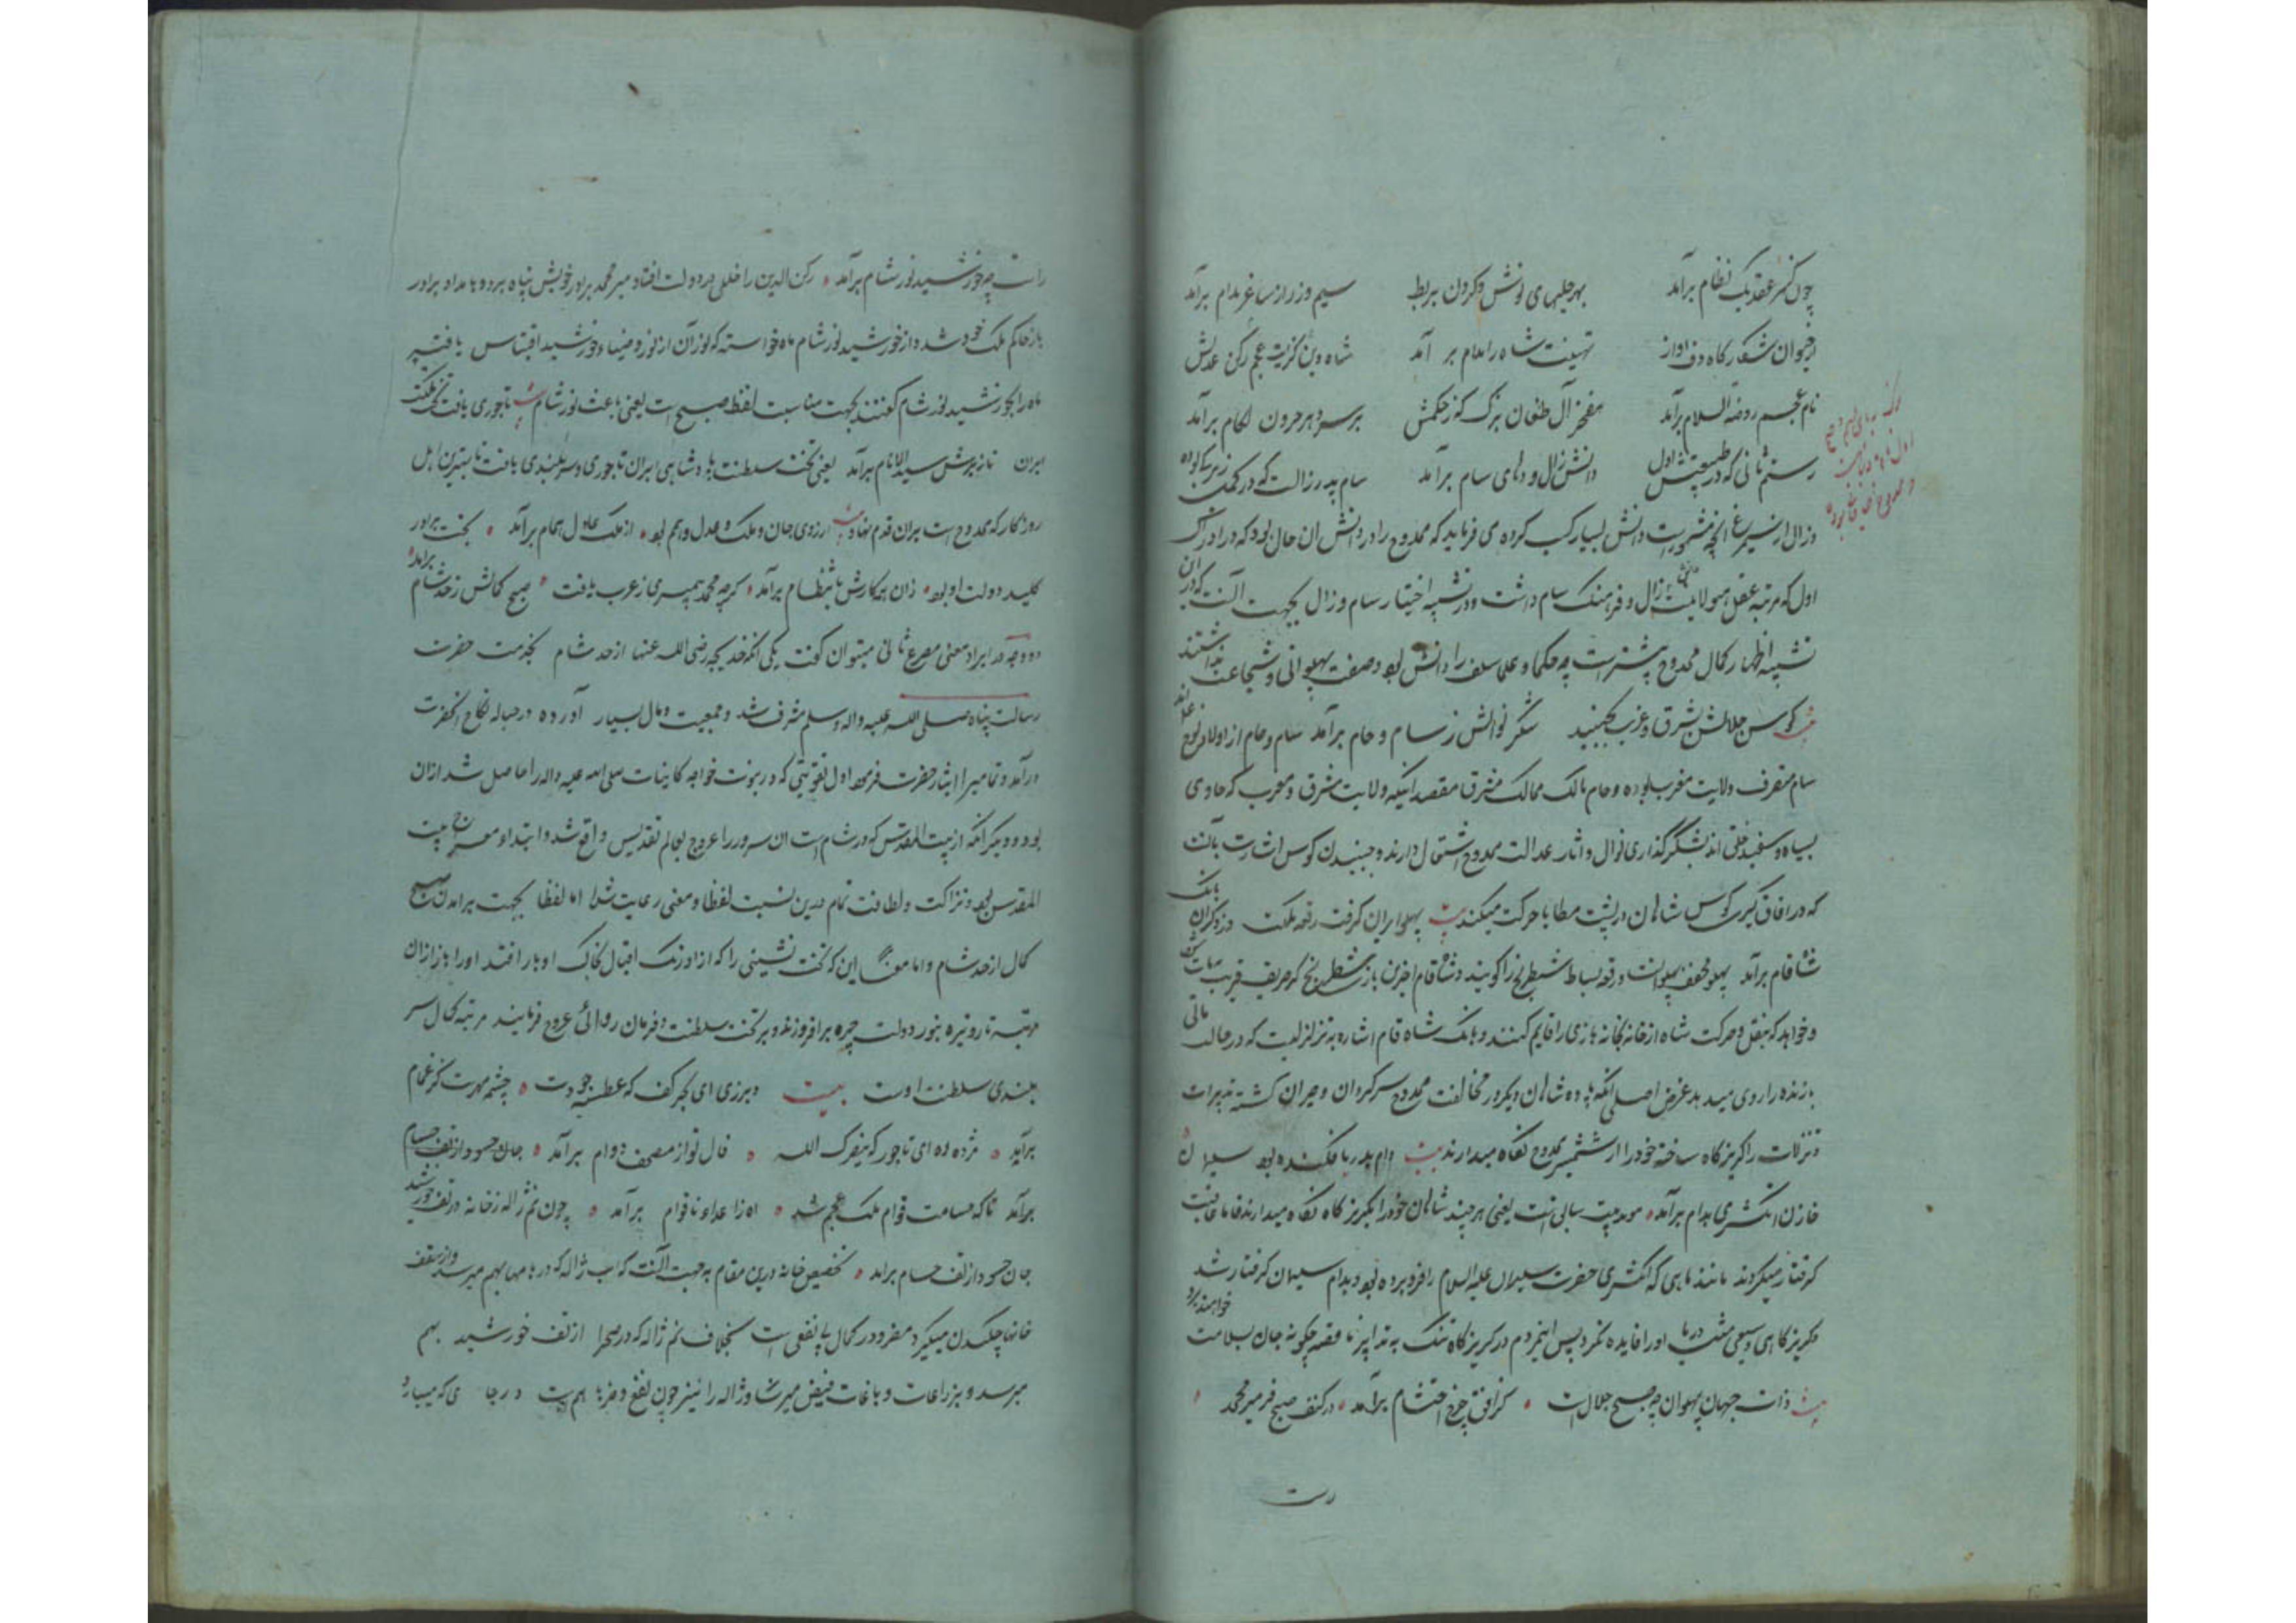 چون کسر عقد یک نظام برآمد بهر حلیهای نوش و کردن بربط سیم و زر از ساغر مدام برآمد
تهنیت شاه را مدام برآمد شاه دین کزیت عجم رکن عدلش
نام عجم روضة السلام برآمد مفخر آل طغان بزرک کز حکمش بر سر دهر حرون لکام برآمد
رستم ثانی که در طبیعتش اول دانش زال و دهای سام برآمد سام پدر زالست که در
و زال از سیمرغ آنچه مشهورست دانش بسیار کسب کرده می فرماید که ممدوح را در دانش ان حال بود که در ادراک
اول که مرتبه عقل هیولانیست زال و فرهنک سام داشت و در تشبیه اختیار سام و زال بجهت آنست که در این
تشبیه اظهار کمال ممدوح بیشترست چه حکما و علما سلف را دانش بود و صفت پهلوانی و شجاعت نداشتند
بیت کوس جلالش بشرق و غرب بجنبید شکر نوالش ز سام و حام برآمد سام و حام از اولاد نوح اند
سام متصرف ولایت مغرب بوده و حام مالک ممالک مشرق مقصد اینکه ولایت مشرق و مغرب که حاوی
بسیاه و سفید خلق اند بشکر گذاری نوال و اثار عدالت ممدوح اشتغال دارند و جنبیدن کوس اشارت بآنست
که در افاق کیری کوس شاهان در پشت مطایا حرکت میکند بیت پهلو ایران کرفت رقعه ملکت وز دکران بانک
شاه قام برآمد پهلو مخفف پهلوانست و رقعه بساط شطرنج را کویند و شاه قام اخرین باز شطرنج که حریف قریب مات شود
و خواهد که بنقل و حرکت شاه از خانه بخانه بازی را قایم کنند و بانک شاه قام اشاره به تزلزلیست که در حالت ماتی
بازنده را روی میدهد غرض اصلی آنکه پادشاهان دیکر در مخالفت ممدوح سرکردان و حیران کشته تدبیرات
و تنزلات را کریزکاه ساخته خود را از شمشیر ممدوح نکاه میدارند بیت دام پدر یا فکنده بود سلیمان
خازن انکشتری بدام برآمد موید بیت سابق است یعنی هر چند شاهان خود را بکریزکاه نکاه میدارند فاما عاقبت
کرفتار میکردند مانند ماهی که انکشتری حضرت سلیمان علیه السلام را فرو برده بود و بدام سلیمان کرفتار شد
و کریزکاهی وسیعی مثل دریا او را فایده نکرد پس اینمردم در کریزکاه تنک چکونه جان بسلامت خواهند برد
بیت ذات جهان پهلوان چه صبح جلال است کز افق چرخ احتشام برآمد در کنف صبح فر میر محمد
رت
راست چو خورشید نور شام برآمد رکن الدین را خللی در دولت افتاد میر محمد برادر خویش پناه برد و بامداد برادر
باز حاکم ملک خود شد و از خورشید نور شام ماه خواسته که نور آن از نور و ضیاء خورشید اقتباس یافته پس
ماه را بخورشید نور شام کفتند بجهت مناسبت لفظ صبح است یعنی باعث نور شام بیت تاجوری یافت تخت مملکت
ایران تا ز برش سید الانام برآمد یعنی تخت سلطنت پادشاهی ایران تاجوری و سربلندی یافت تا بهترین اهل
روزکار که ممدوح است بران قدم نهاد بیت ارزوی جان و ملک و عدل و همم بود از ملک عادل همام برآمد بخت برادر
کلید دولت او بود زان همه کارش بانتظام برآمد کرچه محمد پیمبری ز عرب یافت صبح کمالش ز حد شام برآمد
دو وجه در ایراد معنی مصرع ثانی میتوان کفت یکی آنکه خدیجه رضی الله عنها از حد شام بخدمت حضرت
رسالت پناه صلی الله علیه واله وسلم مشرف شد و جمعیت و مال بسیار آورده در حباله نکاح انحضرت
درآمد و تمامی را ایثار حضرت فرمود اول تقویتی که در نبوت خواجه کاینات صلی الله علیه واله را حاصل شد ازان
بود و دیکر آنکه از بیت المقدس که در شام است ان سرور را عروج بعالم تقدیس واقع شد و ابتداء معراج بیت
المقدس بود و نزاکت و لطافت تمام درین نسبت لفظا و معنی رعایت شد اما لفظا بجهت برامدن صبح
کمال از حد شام و اما معنا این که تخت نشینی را که از اورنک اقبال بخاک ادبار افتد او را باز ازان
مرتبه تار و تیره بنور دولت چهره برافروزند و بر تخت سلطنت و فرمان روائی عروج فرمایند مرتبه کمال سر
بلندی سلطنت اوست بیت دیر زی ای بحر کف که عطسه جودت چشمه مهرست کز غمام
برآید مژده ده ای تاجور که ینصرک الله فال تو از مصحف دوام برآمد جان حسود از تف حسام
برآمد تا که حسامت قوام ملک عجم شد اه ز اعداء ناقوام برآمد چون نم ژاله ز خانه در تف خورشید
جان حسود از تف حسام برآمد تخصیص خانه درین مقام بجهت آنست که اب ژاله که در بامها بهم میرسد و از سقف
خانها چکیدن میکیرد مضر و در کمال بی نفعی است بخلاف نم ژاله که در صحرا از تف خورشید بهم
میرسد و بزراعات و باغات فیض میرساند و ژاله را نیز چون نفع و ضر باهم است در جا ی که میبارد